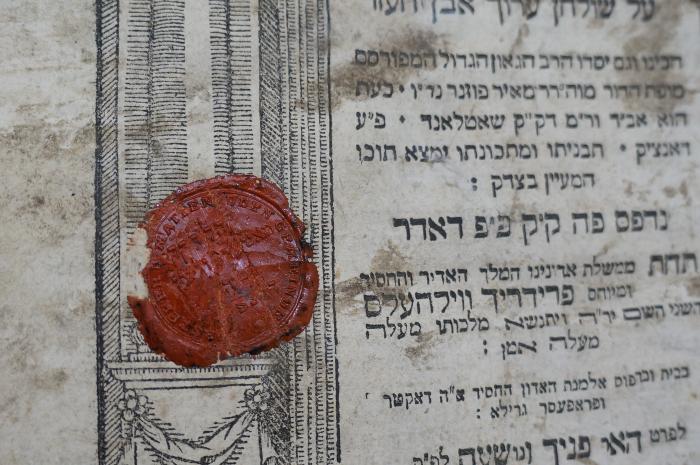 על שולחן ערוך אבן העזר
הכינו וגם יסדו הרב הגאון הגדול המפורסם
מופת הדור מוה׳רר מאיר פוזנר נר״ו • כעת
הוא אב״ד ור״מ דק״ק שאטלאנד • פ״ע
דאנציק • תבניתו ומתכונתו ימצא תוכו
המעיין בצדק :
נדפס פה ק״ק פ״פ דאדר
תחת ממשלת אדונינו המלך האדיר והחסיד
ומיוחס פרידריך ווילהעלם
השני השם יר״ה ויתנשא מלכותו מעלה
מעלה אמן :
בבית ובדפוס אלמנת האדון החסיד א״ה דאקטר
ופראפעסר גרילא :
לפרט האר פניך ונושעה לפ״ק